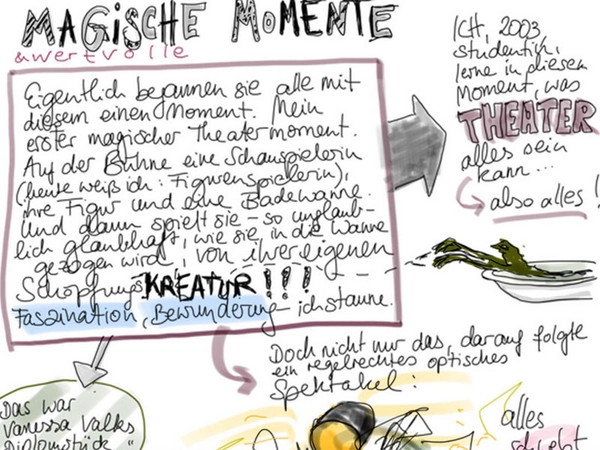 MAGISCHE MOMENTE
& wertvolle
Eigentlich begannen sie alle mit
diesem einen Moment. Mein
erster magischer Theatermoment.
Auf der Bühne eine Schauspielerin
(heute weiß ich: Figurenspielerin),
ihre Figur und eine Badewanne.
Und dann spielt sie – so unglaub-
lich glaubhaft, wie sie in die Wanne
gezogen wird, von ihrer eigenen
Schöpfungs KREATUR!!!
Faszination, Bewunderung – ich staune.
ICH, 2003,
Studentin,
lerne in diesem
Moment, was
THEATER
alles sein
kann...
also alles!
Doch nicht nur das, darauf folgte
ein regelrechtes optisches
Spektakel:
Das war
Vanessa Valks
Diplomstück "
alles